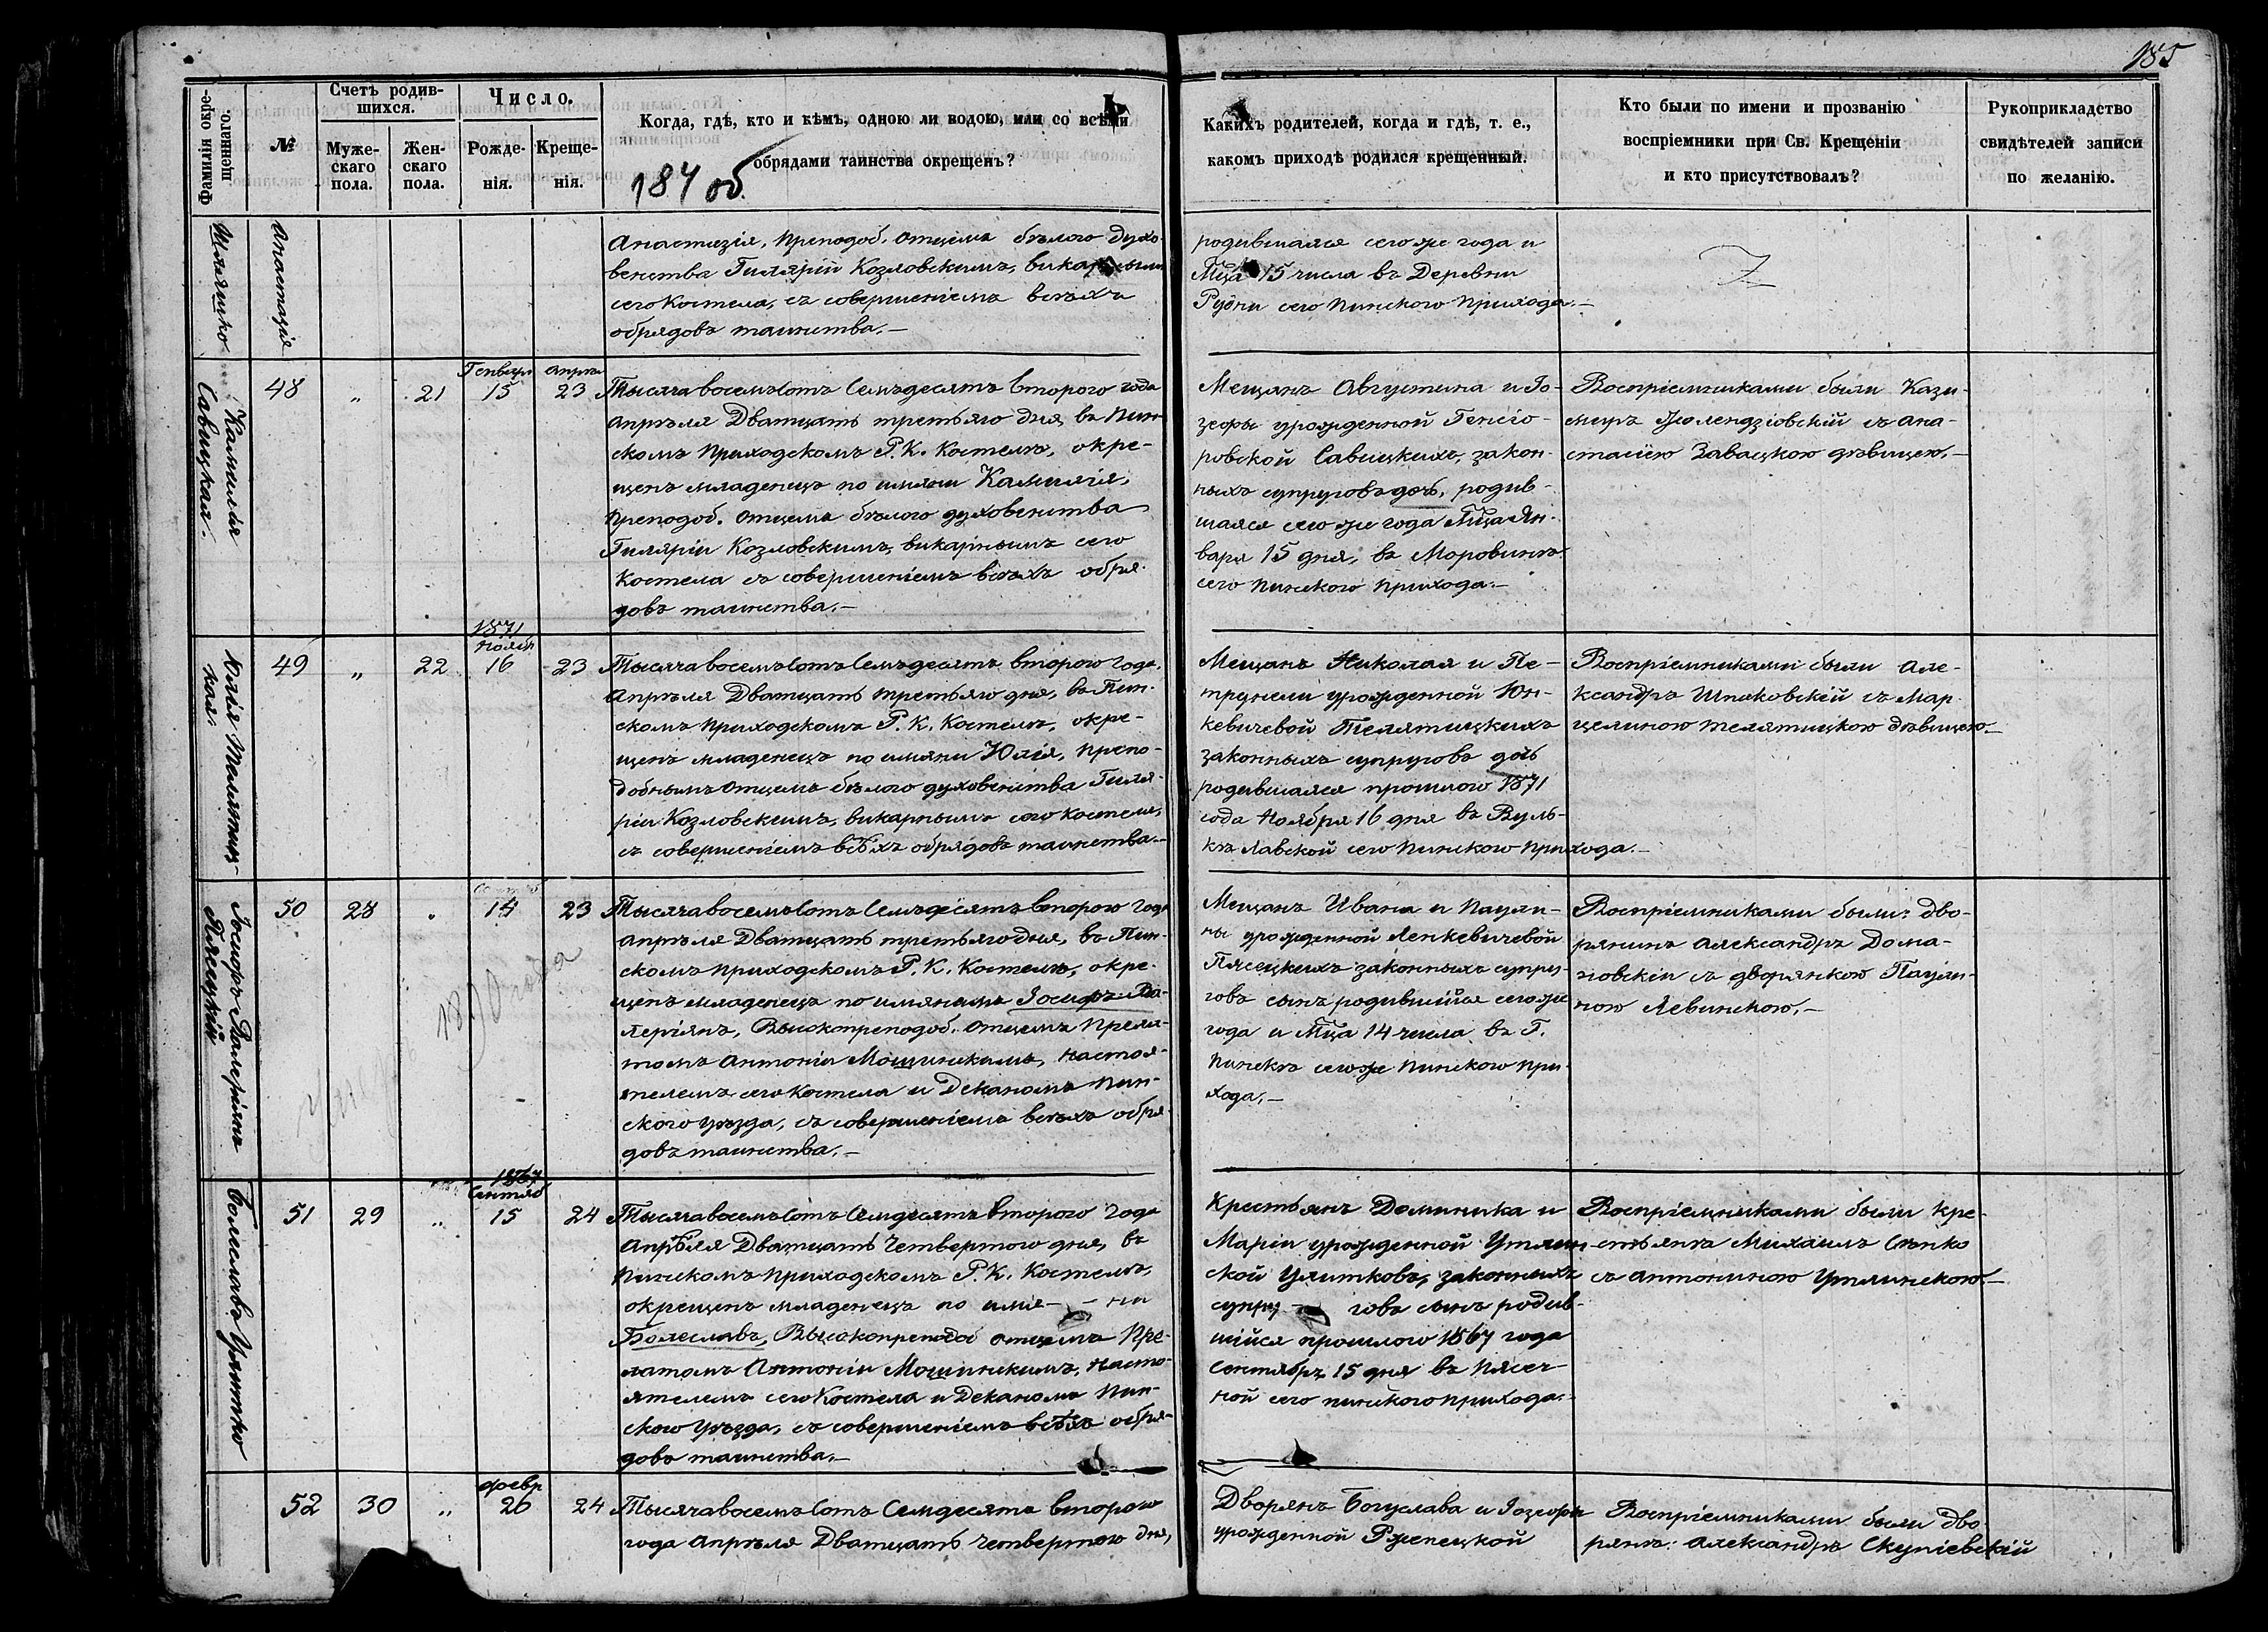 185
Фамилія окрещеннаго.
№
Счетъ родившихся.
Мужескаго пола.
Женскаго пола.
Число.
Рожденія.
Крещенія.
Когда, гдѣ, кто и кѣмъ, одною ли водою, или со всѣми
обрядами таинства окрещенъ?
184 об.
Какихъ родителей, когда и гдѣ, т. е.,
какомъ приходѣ родился крещенный.
Кто были по имени и прозванію
воспріемники при Св. Крещеніи
и кто присутствовалъ?
Рукоприкладство
свидѣтелей записи
по желанію.
Анастазія
Анастазія, Преподоб. Отцемъ бѣлого духо-
венства Гиляріи Козловскимъ, викарнымъ
сего Костела, съ совершеніемъ всѣхъ
обрядовъ таинства.—
родившаяся сего же года и
Мца 15 числа въ Деревни
Рудни сего Пинского Прихода.—
Камилія
Савицкая.
48 „ 21
Генваря 15
Апрѣля 23
Тысяча восемъ Сотъ Семъдесятъ второго года
Апрѣля Дватцать третьяго дня, въ Пин-
скомъ Приходскомъ Р. К. Костелѣ, окре-
щенъ младенецъ по имяни Камилія,
Преподоб. Отцемъ бѣлого духовенства
Гиляріи Козловскимъ, викарнымъ сего
Костела съ совершеніемъ всѣхъ обря-
довъ таинства.—
Мещанъ Августина и Іо-
зефы урожденной
Савицкихъ, закон-
ныхъ супруговъ дочь, родив-
шаяся сего же года Мца Ян-
варя 15 дня, въ Моровинѣ
сего Пинского Прихода.—
Воспріемниками были Кази-
миръ съ Ана-
стасіею Завацкою дѣвицею.—
Юлія Телятиц-
кая.
49 „ 22
1871
Ноябр
16 23
Тысяча восемъ Сотъ Семъдесятъ второго года
Апрѣля Дватцать третьяго дня, въ Пин-
скомъ Приходскомъ Р. К. Костелѣ, окре-
щенъ младенецъ по имяни Юлія, Препо-
добнымъ Отцемъ бѣлого духовенства Гиля-
ріи Козловскимъ, викарнымъ сего Костела,
съ совершеніемъ всѣхъ обрядовъ таинства.—
Мещанъ Николая и Пе-
трунели урожденной Юн-
кевичевой Телятицкихъ
законныхъ супруговъ дочь
родившаяся прошлого 1871
года Ноября 16 дня въ Вуль-
кѣ Лавской сего Пинского Прихода.—
Воспріемниками были Але-
ксандръ Шпаковскій съ Мар-
целиною Телятицкою дѣвицею.—
Іосифъ Валеріянъ
Пясецкій
50 28 „
14 23
Тысяча восемъ Сотъ Семъдесятъ второго года
Апрѣля Дватцать третьяго дня, въ Пин-
скомъ Приходскомъ Р. К. Костелѣ, окре-
щенъ младенецъ по имянамъ Іосифъ Ва-
леріянъ, Высокопреподоб. Отцемъ Прела-
томъ Антоніи Мошинскимъ, Настоя-
телемъ сего Костела и Деканомъ Пин-
ского уѣзда, съ совершеніемъ всѣхъ обря-
довъ таинства.—
Мещанъ Ивана и Паули-
ны урожденной Ленкевичевой
Пясецкихъ законныхъ супру-
говъ сынъ родившійся сего же
года и Мца 14 числа въ Г.
Пинскѣ сего же Пинского При-
хода.—
Воспріемниками были: дво-
рянинъ Александръ Дома-
новскій съ дворянкою Паули-
ною Левинскою.—
Болеславъ Улитко
51 29 „
1867
Сентяб
15 24
Тысяча восемъ Сотъ Семдесятъ второго года
Апрѣля Дватцать Четвертого дня, въ
Пинскомъ Приходскомъ Р. К. Костелѣ,
окрещенъ младенецъ по имя- - ни
Болеславъ, Высокопреподоб Отцемъ Пре-
латомъ Антоніи Мошинскимъ, Насто-
ятелемъ сего Костела и Деканомъ Пин-
ского уѣзда, съ совершеніемъ всѣхъ обря-
довъ таинства.—
Крестьянъ Доминика и
Маріи урожденной Утлин-
ской Улитковъ, законныхъ
супру- - говъ сынъ родив-
шійся прошлого 1867 года
Сентябрѣ 15 дня въ Пясеч-
ной сего пинского прихода.—
Воспріемниками были кре-
стьянъ Михаилъ Сѣнко
съ Антониною Утлинскою.—
52 30 „
Февр
20 24
Тысяча восемъ Сотъ Семдесятъ второго
года Апрѣля Дватцать Четвертого дня,
Дворянъ Богуслава и Іозефы
урожденной Ржепецкой
Воспріемниками были дво-
рянъ: Александръ Скупіевскій